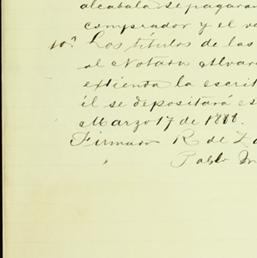 alcabala se pagarán
comprador y el ve
10ª. Los títulos de las
al Notario Alvar
extienda la escrit
él se depositará es
Marzo 17 de 1888.
Firmado R de Za
Pablo